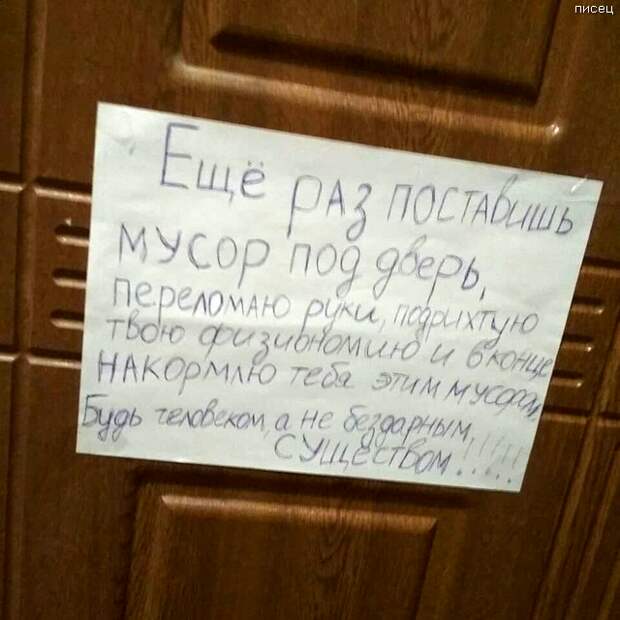 писец
Ещё раз поставишь
мусор под дверь,
переломаю руки, подрихтую
твою физиономию и в конце
накормлю тебя этим мусором.
Будь человеком, а не бездарным
существом!!!!!